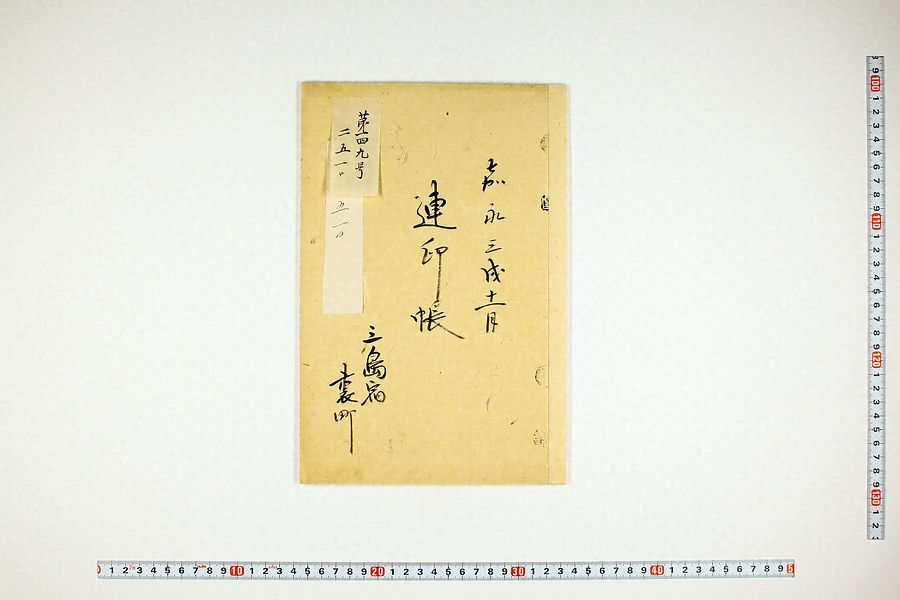 嘉永三戌十一月
連印帳
三島宿
裏町
第四九号
二五一〇
五一〇
1 2 3 4 5 6 7 8 9 10 1 2 3 4 5 6 7 8 9 20 1 2 3 4 5 6 7 8 9 30 1 2 3 4 5 6 7 8 9 40 1 2 3 4 5 6 7 8 9 5
9 100 1 2 3 4 5 6 7 8 9 110 1 2 3 4 5 6 7 8 9 120 1 2 3 4 5 6 7 8 9 130 1 2